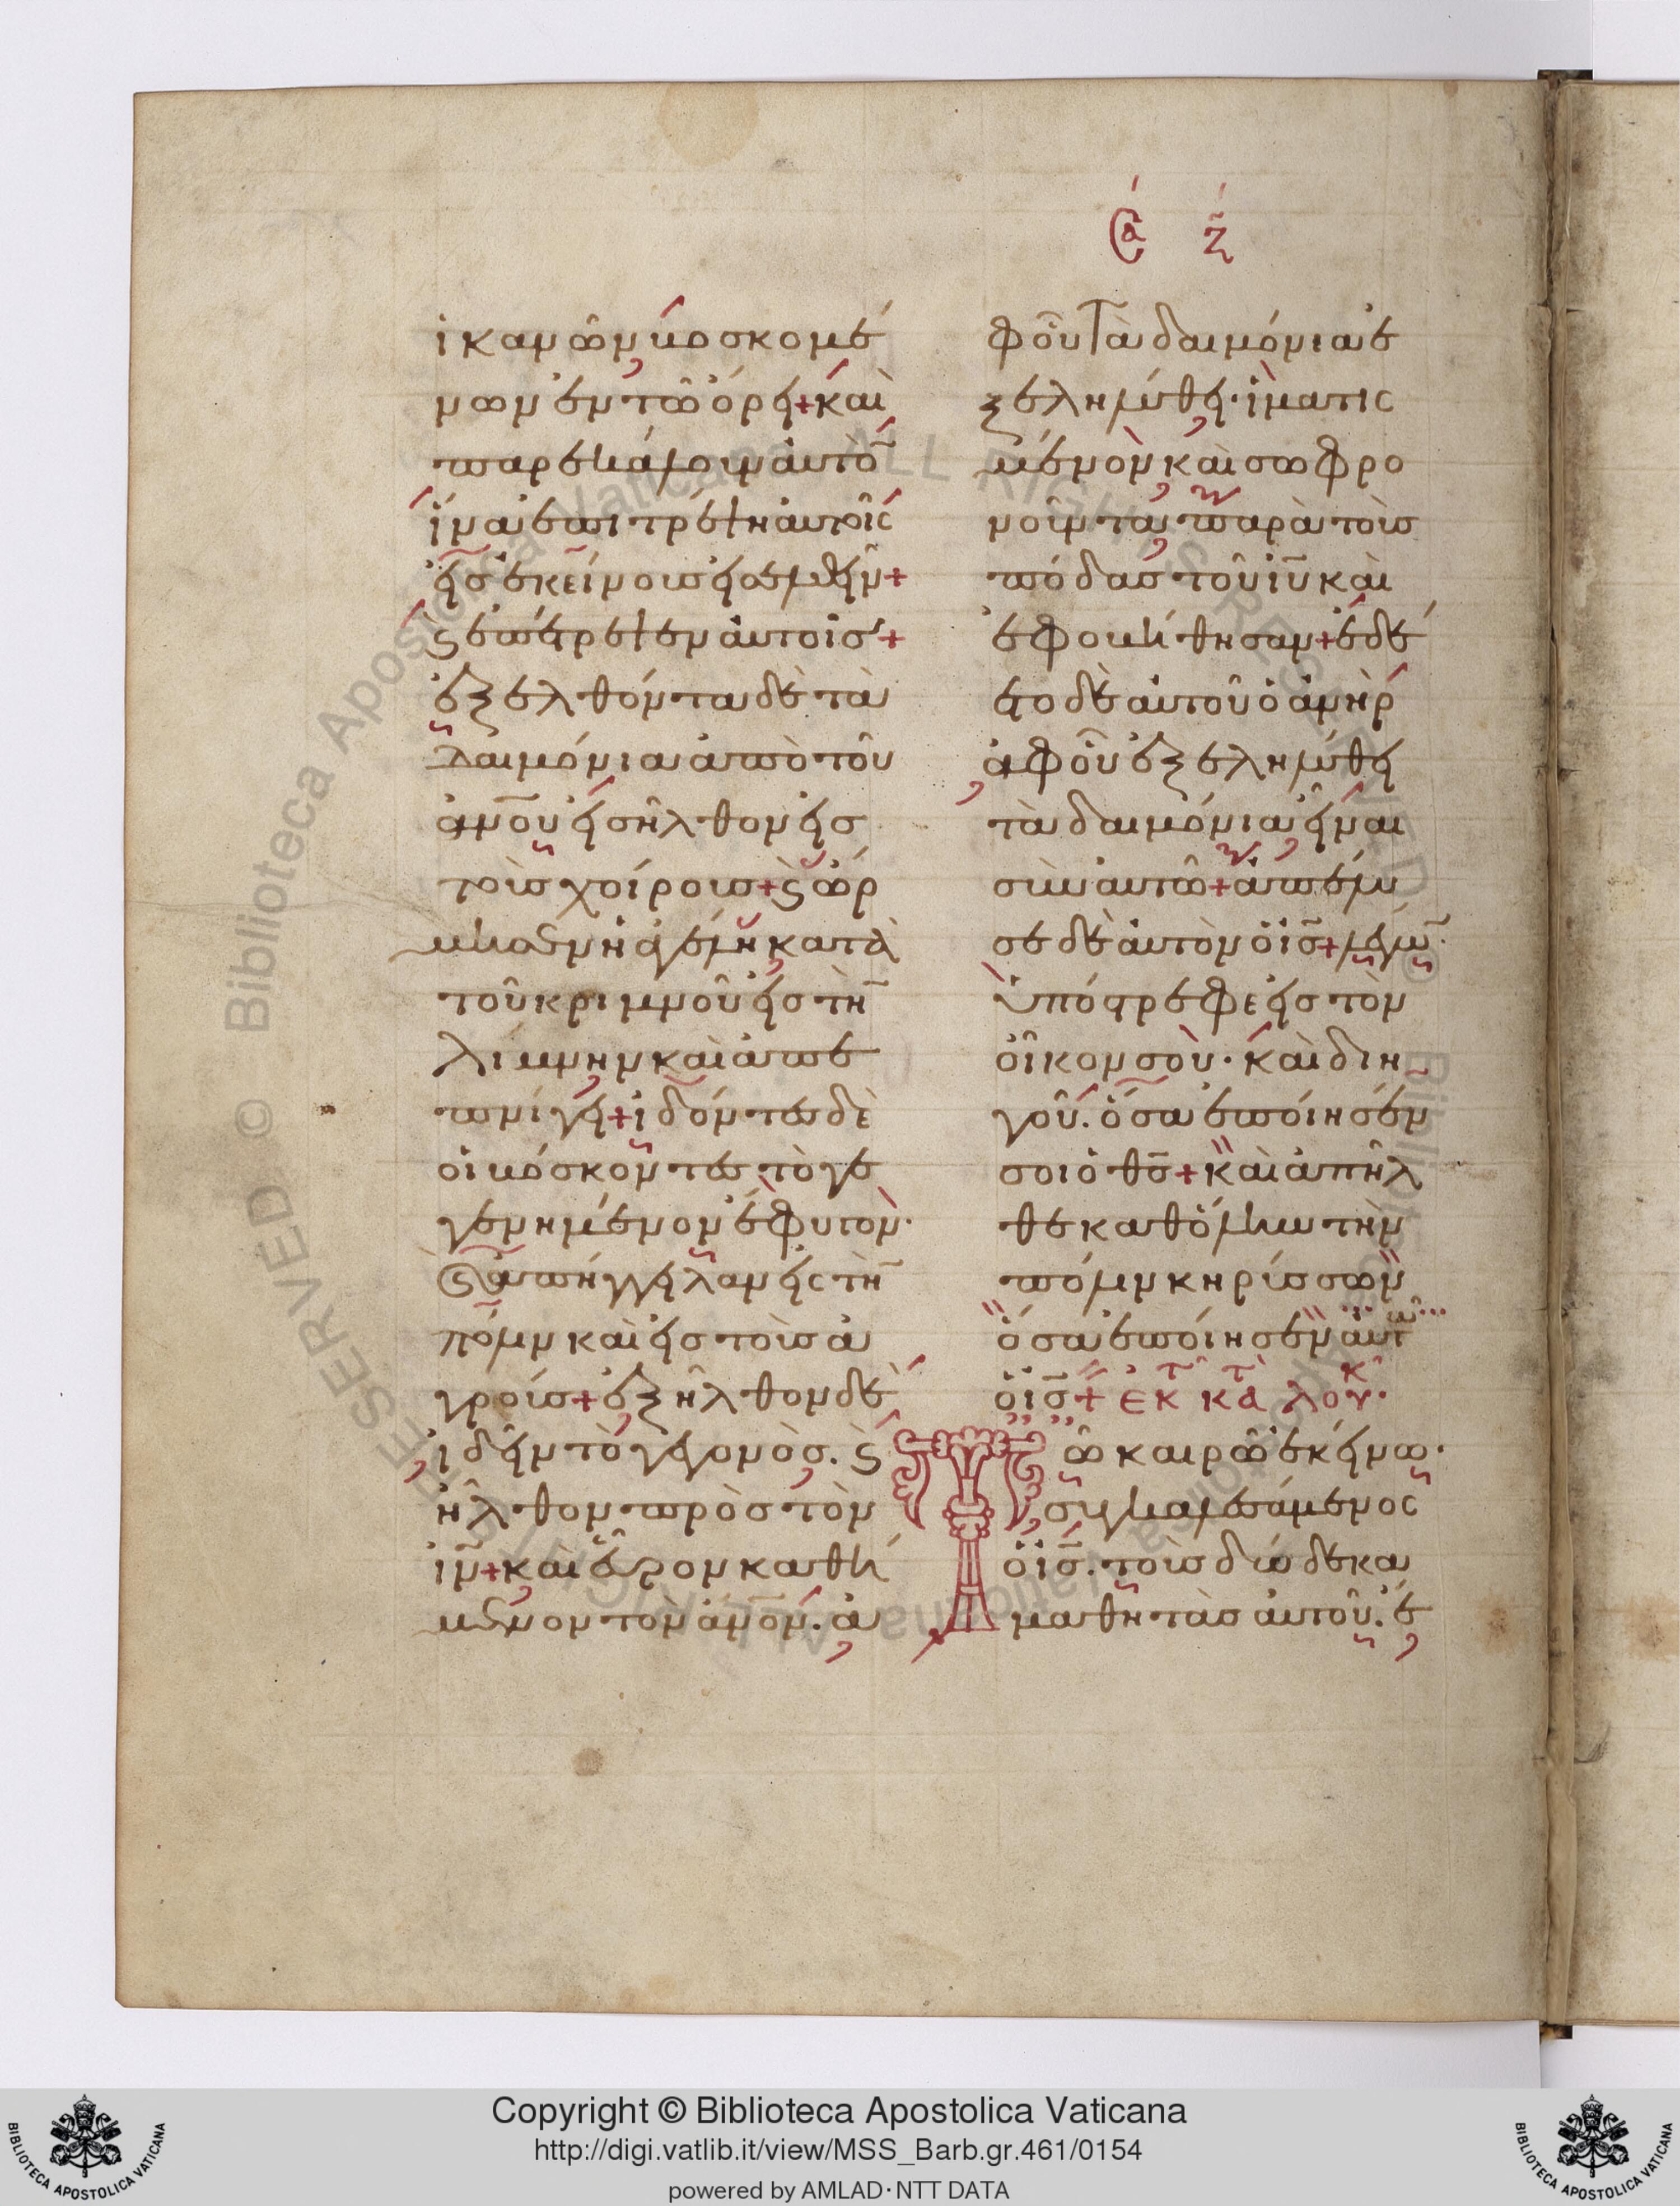 Ϲα ζ
ἱκανῶν βοσκομέ
νων ἐν τῶ ὄρει + καὶ
παρεκάλουν αὐτὸν
ἵνα ἐπιτρέψη αὐτοῖς
εἰς ἐκείνους εἰσελθεῖν +
ϗ ἐπέτρεψεν αὐτοῖς +
ἐξελθόντα δὲ τὰ
δαιμόνια ἀπὸ τοῦ
ἀνου εἰσῆλθον εἰς
τοὺς χοίρους + ϗ ὥρ
μησεν ἡ ἀγέλη κατὰ
τοῦ κριμνοῦ εἰς τὴν
λίμνην καὶ ἀπε
πνίγη + ἰδόντες δὲ
οἱ βόσκοντες τὸ γε
γενημένον ἔφυγον·
ϗ ἀπήγγειλαν εἰς τὴν
πόλιν καὶ εἰς τοὺς ἀ
γρούς + ἐξῆλθον δὲ
ἰδεῖν τὸ γεγονὸς. ϗ
ἦλθον πρὸς τὸν
ἰν + καὶ εὗρον καθή
μενον τὸν ἀνον. ἀ
φ' οὗ τὰ δαιμόνια ἐ
ξεληλύθει· ἱματισ
μένον καὶ σωφρο
νοῦντα παρὰ τοὺς
πόδας τοῦ ἰυ καὶ
ἐφοβήθησαν + ἐδέ
ετο δὲ αὐτοῦ ὁ ἀνὴρ
ἀφ' οὗ ἐξεληλύθει
τὰ δαιμόνια εἶναι
σὺν αὐτῶ + ἀπέλυ
σε δὲ αὐτὸν ὁ ις + λέγων·
ὑπόστρεφε εἰς τὸν
οἶκον σοὺ· καὶ διη
γοῦ. ὅσα ἐποίησέν
σοι ὁ θς + καὶ ἀπῆλ
θε καθ' ὅλην τὴν
πόλιν κηρύσσων
ὅσα ἐποίησεν αὐτῶ
ὁ ις + ἐκ τοῦ κατὰ λουκ·
Τῶ καιρῶ ἐκείνω·
συγκαλεσάμενος
ὁ ις. τοὺς δώδεκα
μαθητὰς αὐτοῦ. ἔ
Copyright © Biblioteca Apostolica Vaticana
http://digi.vatlib.it/view/MSS_Barb.gr.461/0154
powered by AMLAD·NTT DATA
BIBLIOTECA APOSTOLICA VATICANA
BIBLIOTECA APOSTOLICA VATICANA